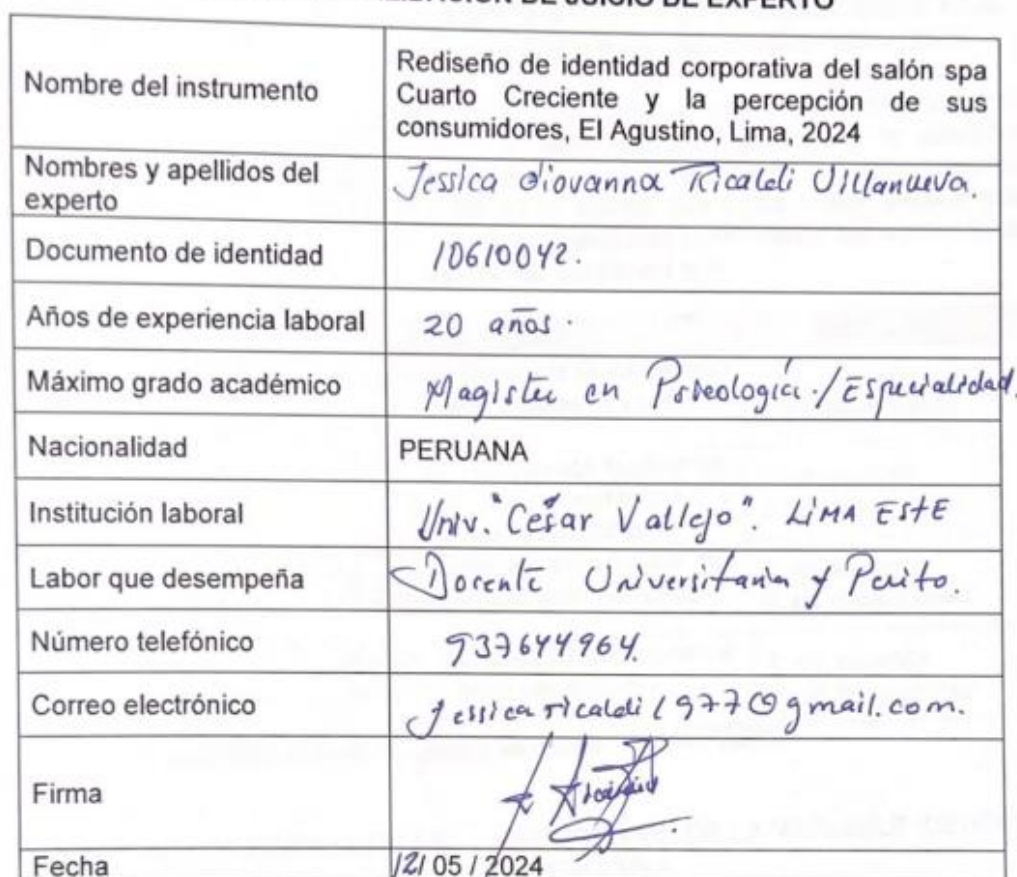 DE JUICIO DE EXPERTO
Nombre del instrumento
Rediseño de identidad corporativa del salón spa
Cuarto Creciente y la percepción de sus
consumidores, El Agustino, Lima, 2024
Nombres y apellidos del
experto
Jessica Giovanna Ricaldi Villanueva.
Documento de identidad
10610042.
Años de experiencia laboral
20 años.
Máximo grado académico
Magister en Psicología./Especialidad.
Nacionalidad
PERUANA
Institución laboral
Univ. "César Vallejo". LIMA ESTE
Labor que desempeña
Docente Universitaria y Perito.
Número telefónico
937644964.
Correo electrónico
jessicaricaldi1977@gmail.com.
Firma
Fecha
12/ 05 / 2024